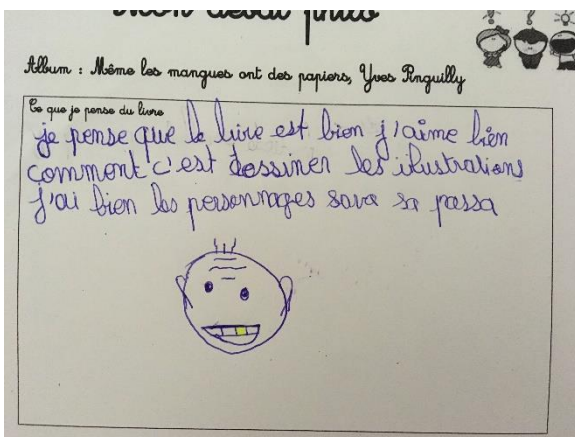 Mon débat philo
Album : Même les mangues ont des papiers, Yves Pinguilly
Ce que je pense du livre
je pense que le livre est bien j'aime bien
comment c'est dessiner les ilustrations
j'ai bien les personnages sava sa passa